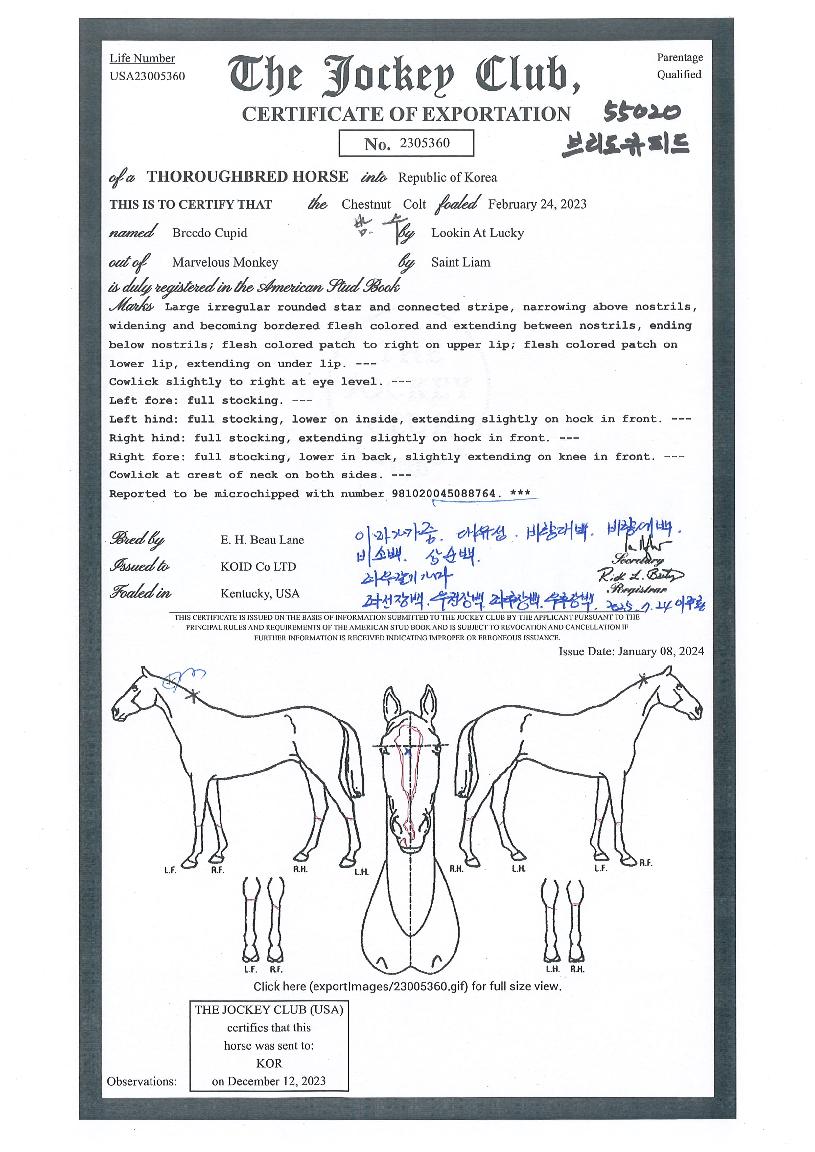 Life Number
USA23005360
The Jockey Club,
Parentage
Qualified
CERTIFICATE OF EXPORTATION
55020
브리도큐피드
No. 2305360
of a THOROUGHBRED HORSE into Republic of Korea
THIS IS TO CERTIFY THAT the Chestnut Colt foaled February 24, 2023
named Breedo Cupid by Lookin At Lucky
out of Marvelous Monkey by Saint Liam
is duly registered in the American Stud Book
Marks Large irregular rounded star and connected stripe, narrowing above nostrils,
widening and becoming bordered flesh colored and extending between nostrils, ending
below nostrils; flesh colored patch to right on upper lip; flesh colored patch on
lower lip, extending on under lip. ---
Cowlick slightly to right at eye level. ---
Left fore: full stocking. ---
Left hind: full stocking, lower on inside, extending slightly on hock in front. ---
Right hind: full stocking, extending slightly on hock in front. ---
Right fore: full stocking, lower in back, slightly extending on knee in front. ---
Cowlick at crest of neck on both sides. ---
Reported to be microchipped with number 981020045088764. ***
Bred by E. H. Beau Lane
비소백. 상순백.
Secretary
Issued to KOID Co LTD
Registrar
Foaled in Kentucky, USA
THIS CERTIFICATE IS ISSUED ON THE BASIS OF INFORMATION SUBMITTED TO THE JOCKEY CLUB BY THE APPLICANT PURSUANT TO THE
PRINCIPAL RULES AND REQUIREMENTS OF THE AMERICAN STUD BOOK AND IS SUBJECT TO REVOCATION AND CANCELLATION IF
FURTHER INFORMATION IS RECEIVED INDICATING IMPROPER OR ERRONEOUS ISSUANCE.
Issue Date: January 08, 2024
L.F. R.F. R.H. L.H. R.H. L.H. L.F. R.F.
L.F. R.F. L.H. R.H.
Click here (exportImages/23005360.gif) for full size view.
THE JOCKEY CLUB (USA)
certifies that this
horse was sent to:
KOR
Observations: on December 12, 2023